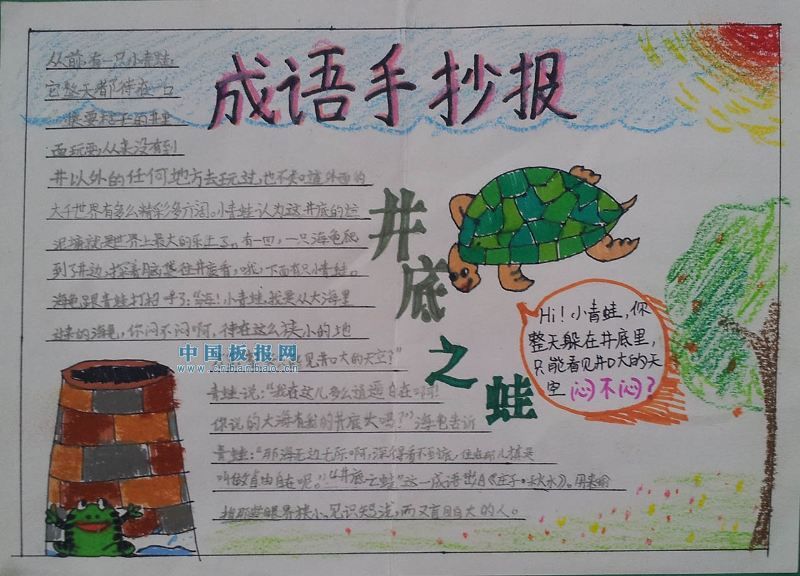 成语手抄报
从前有一只小青蛙,
它整天都待在一口
很要枯干的井里
面玩耍,从来没有到
井以外的任何地方去玩过,也不知道外面的
大千世界有多么精彩多么广阔。小青蛙认为这井底的烂
泥塘就是世界上最大的乐土了。有一回,一只海龟爬
到了井边,探着脑袋往井底看,哦,下面有只小青蛙。
海龟跟青蛙打招呼了:“海!小青蛙,我是从大海里
过来的海龟,你闷不闷啊,待在这么狭小的地
见井口大的天空了”
青蛙说:“我在这儿多么逍遥自在啊!
你说的大海有我的井底大吗?”海龟告诉
青蛙:“那海无边无际啊,深得看不到底,住在那儿才是
叫做自由自在呢。”“井底之蛙”这一成语出自《庄子·秋水》。用来
指那些眼界狭小、见识短浅,而又盲目自大的人。
井底之蛙
Hi!小青蛙,你
整天躲在井底里,
只能看见井口大的天
空闷不闷?
中国板报网
www.cnbanbao.cn